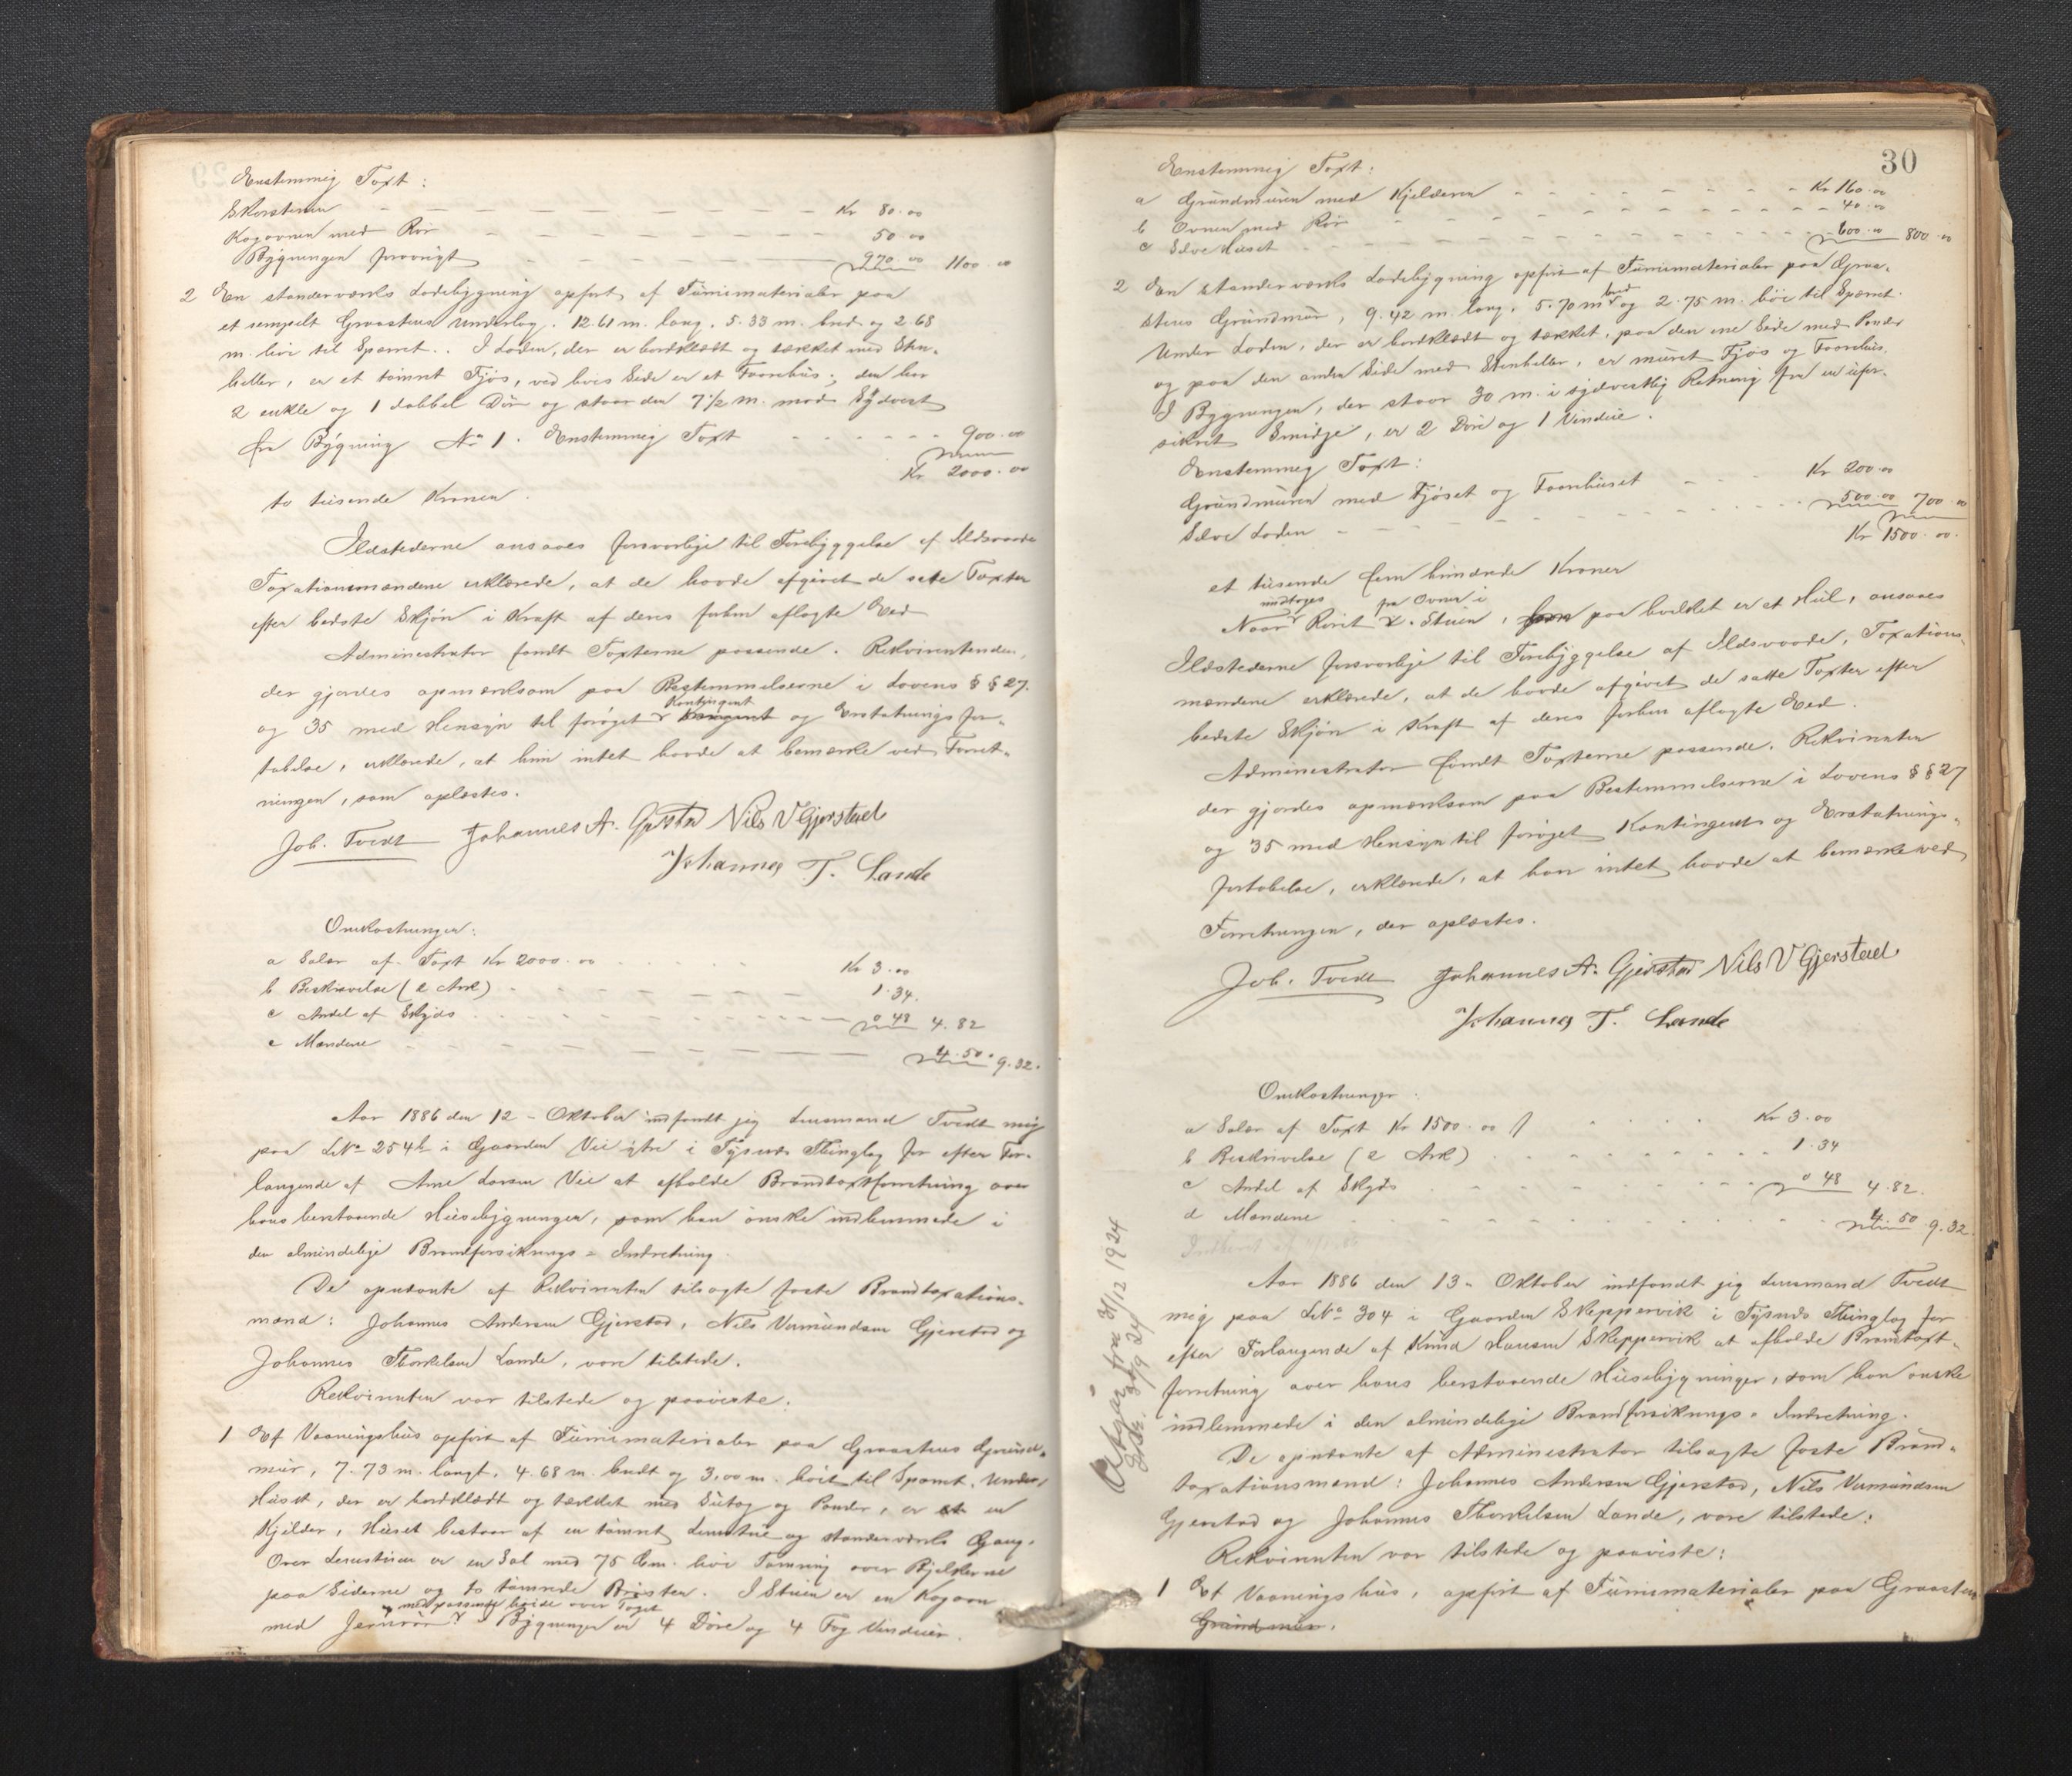 Enstemmig Taxt:
Skorstenen Kr 80.00
Kogovnen med Rör 50.00
Bygningen forövrigt 970.00 1100.00
2 En standerværks Ladebygning opfört af Furumaterialer paa
et simpelt Graastens Underlag. 12.61 m. lang. 5.33 m. bred og 2.68
m. höi til Spærret.. I Laden, der er bordklædt og tækket med Sten-
heller, er et tömret Fjös, ved hvis Side er et Faarehus; den har
2 enkle og 1 dobbel Dör og staar den 7 1/2 m. mod Sydvest
fra Bygning No 1. Enstemmig Taxt 900.00
Kr 2000.00
to tusende Kroner.
Ildstederne ansaaes forsvarlige til Forebyggelse af Ildsvaade
Taxationsmændene erklærede, at de havde afgivet de satte Taxter
efter bedste Skjön i Kraft af deres forhen aflagte Eed
Administrator fandt Taxterne passende. Rekvirentenden,
der gjordes opmærksom paa Bestemmelserne i Lovens § § 27.
Kontingent
og 35 med Hensyn til foröget og Erstatnings for-
tabelse, erklærede, at hun intet havde at bemærke ved Forret-
ningen, som oplæstes.
Joh. Tvedt Johannes A. Gjerstad Nils V Gjerstad
Johannes T. Lande
Omkostninger:
a Salær af Taxt Kr 2000.00 Kr 3.00
b Beskrivelse (2 Ark) 1.34.
c Andel af Skyds 0 48 4.82
c Mændene 4.50. 9.32.
Aar 1886 den 12 - Oktober indfandt jeg Lensmand Tvedt mig
paa LNo 254b i Gaarden Vie ytre i Tysnes Thinglag for efter For-
langende af Arne Larsen Vie at afholde Brandtaxtforretning over
hans herstaaende Husebygninger, som han önske indlemmede i
den almindelige Brandforsikrings-Indretning.
De opnævnte af Rekvirenten tilsagte faste Brandtaxations-
mænd: Johannes Andersen Gjerstad, Nils Vermundsen Gjerstad og
Johannes Thorkelsen Lande, vare tilstede.
Rekvirenten var tilstede og paaviste:
1 Et Vaaningshus opfört af Furumaterialer paa Graastens Grund-
mur, 7.73 m. langt, 4.68 m. bredt og 3,00 m. höit til Spærret. Under
Huset, der er bordklædt og tækket med Sutag og Pander, er en
Kjelder, Huset bestaar af en tömret Lemstue og standerværks Gang.
Over Lemstuen er en Sal med 75 Cm. höi Tömring over Bjelkerne
paa Siderne og to tömrede Bröster. I Stuen er en Kogovn
med passende höide over Taget
med Jernrör. I Bygningen er 4 Döre og 4 Fag Vinduer.
30
Enstemmig Taxt:
a Grundmuren med Kjelderen Kr 160.00
b Ovnen med Rör 40.00
c Selve Huset 600.00 800.00
2 En standerværks Ladebygning opfört af Furumaterialer paa Graa-
bred
stens Grundmur, 9.42 m. lang, 5.70 m og 2.75 m. höi til Spærret.
Under Laden, der er bordklædt og tækket, paa den ene Side med Pander
og paa den anden Side med Stenheller, er muret Fjös og Faarehus.
I Bygningen, der staar 30 m. i sydvestlig Retning fra en ufor-
sikret Smidje, er 2 Döre og 1 Vindue.
Enstemmig Taxt:
Grundmuren med Fjöset og Faarehuset Kr 200.00
Selve Laden 500.00 700.00
Kr 1500.00.
et tusende fem hundrede Kroner
undtages fra Ovnen i
Naar Röret Stuen, paa hvilket er et Hul, ansaaes
Ildstederne forsvarlige til Forebyggelse af Ildsvaade, Taxations
mændene erklærede, at de havde afgivet de satte Taxter efter
bedste Skjön i Kraft af deres forhen aflagte Eed.
Administrator fandt Taxterne passende. Rekvirenten
der gjordes opmærksom paa Bestemmelserne i Lovens § § 27
og 35 med Hensyn til foröget Kontingent og Erstatnings-
fortabelse, erklærede, at han intet havde at bemærke ved
Forretningen, der oplæstes.
Joh. Tvedt Johannes A. Gjerstad Nils V Gjerstad
Johannes T. Lande
Omkostninger:
a Salær af Taxt Kr 1500.00 Kr 3.00
b Beskrivelse (2 Ark) 1.34
c Andel af Skyds 0 48 4.82.
d Mændene 4.50 9.32.
Aar 1886 den 13 - Oktober indfandt jeg Lensmand Tvedt
mig paa LNo 304 i Gaarden Skeppervik i Tysnes Thinglag for
efter Forlangende af Knud Hansen Skeppervik at afholde Brandtaxt-
forretning over hans herstaaende Husebygninger, som han önske
indlemmede i den almindelige Brandforsikrings-Indretning.
De opnævnte af Administrator tilsagte faste Brand-
taxationsmænd: Johannes Andersen Gjerstad, Nils Vermundsen
Gjerstad og Johannes Thorkelsen Lande, vare tilstede:
Rekvirenten var tilstede og paaviste:
1 Et Vaaningshus, opfört af Furumaterialer paa Graastens
Grundmur.
Avgår fra 31/12 1924